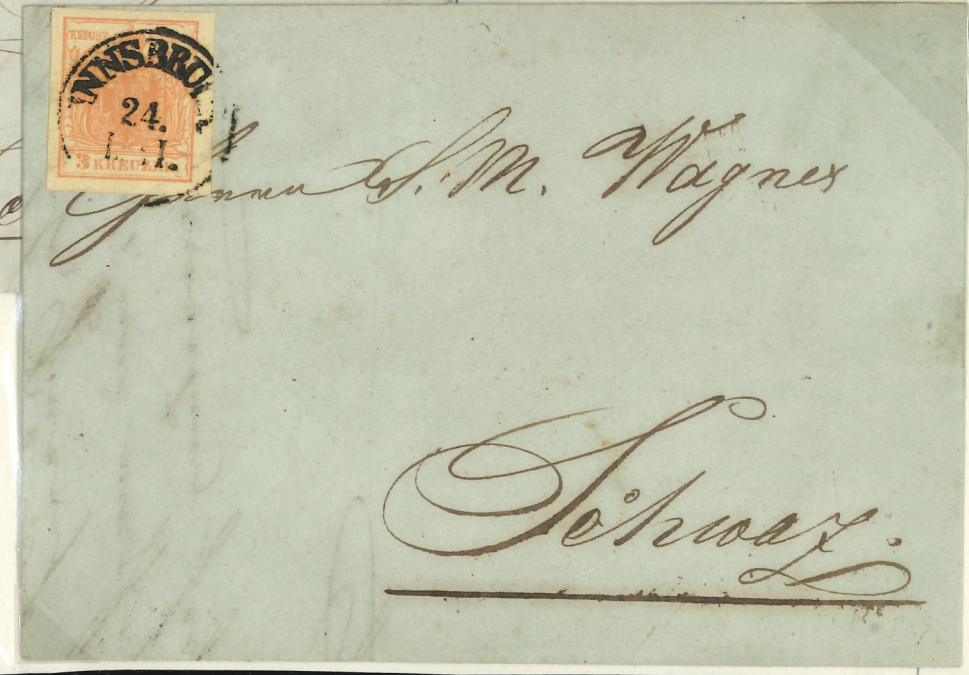 INNSBRUCK
24.
3 KREUZER
Herrn S. M. Wagner
Schwaz.